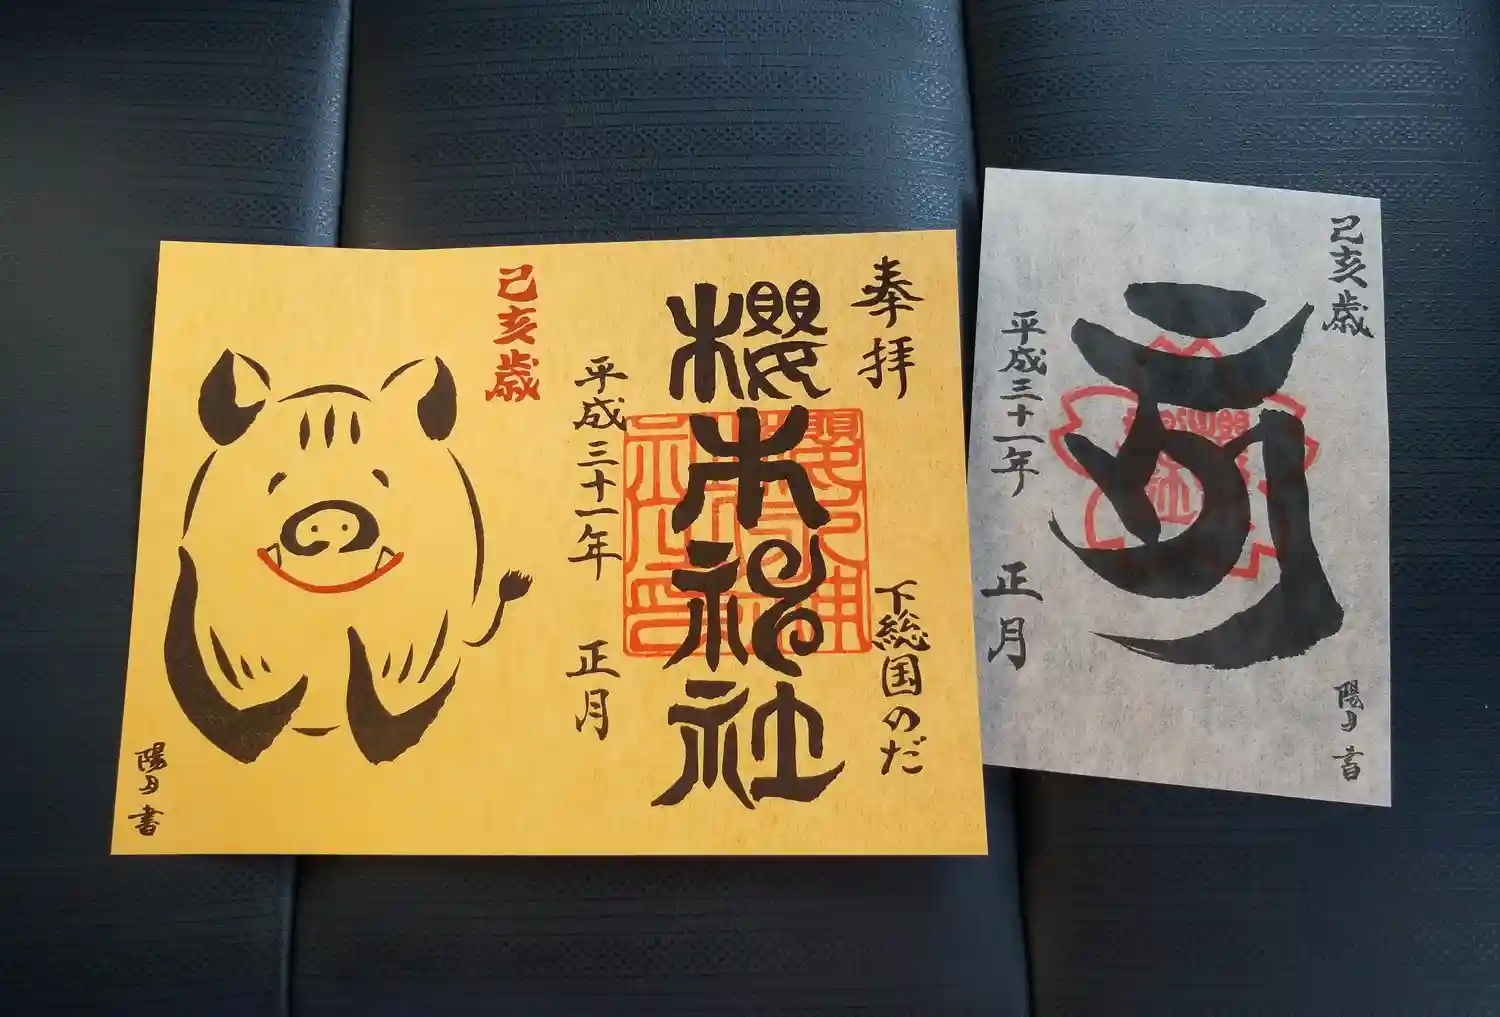 奉拝
下総国のだ
櫻木神社
平成三十一年 正月
己亥歳
陽月 書
己亥歳
平成三十一年 正月
陽月 書